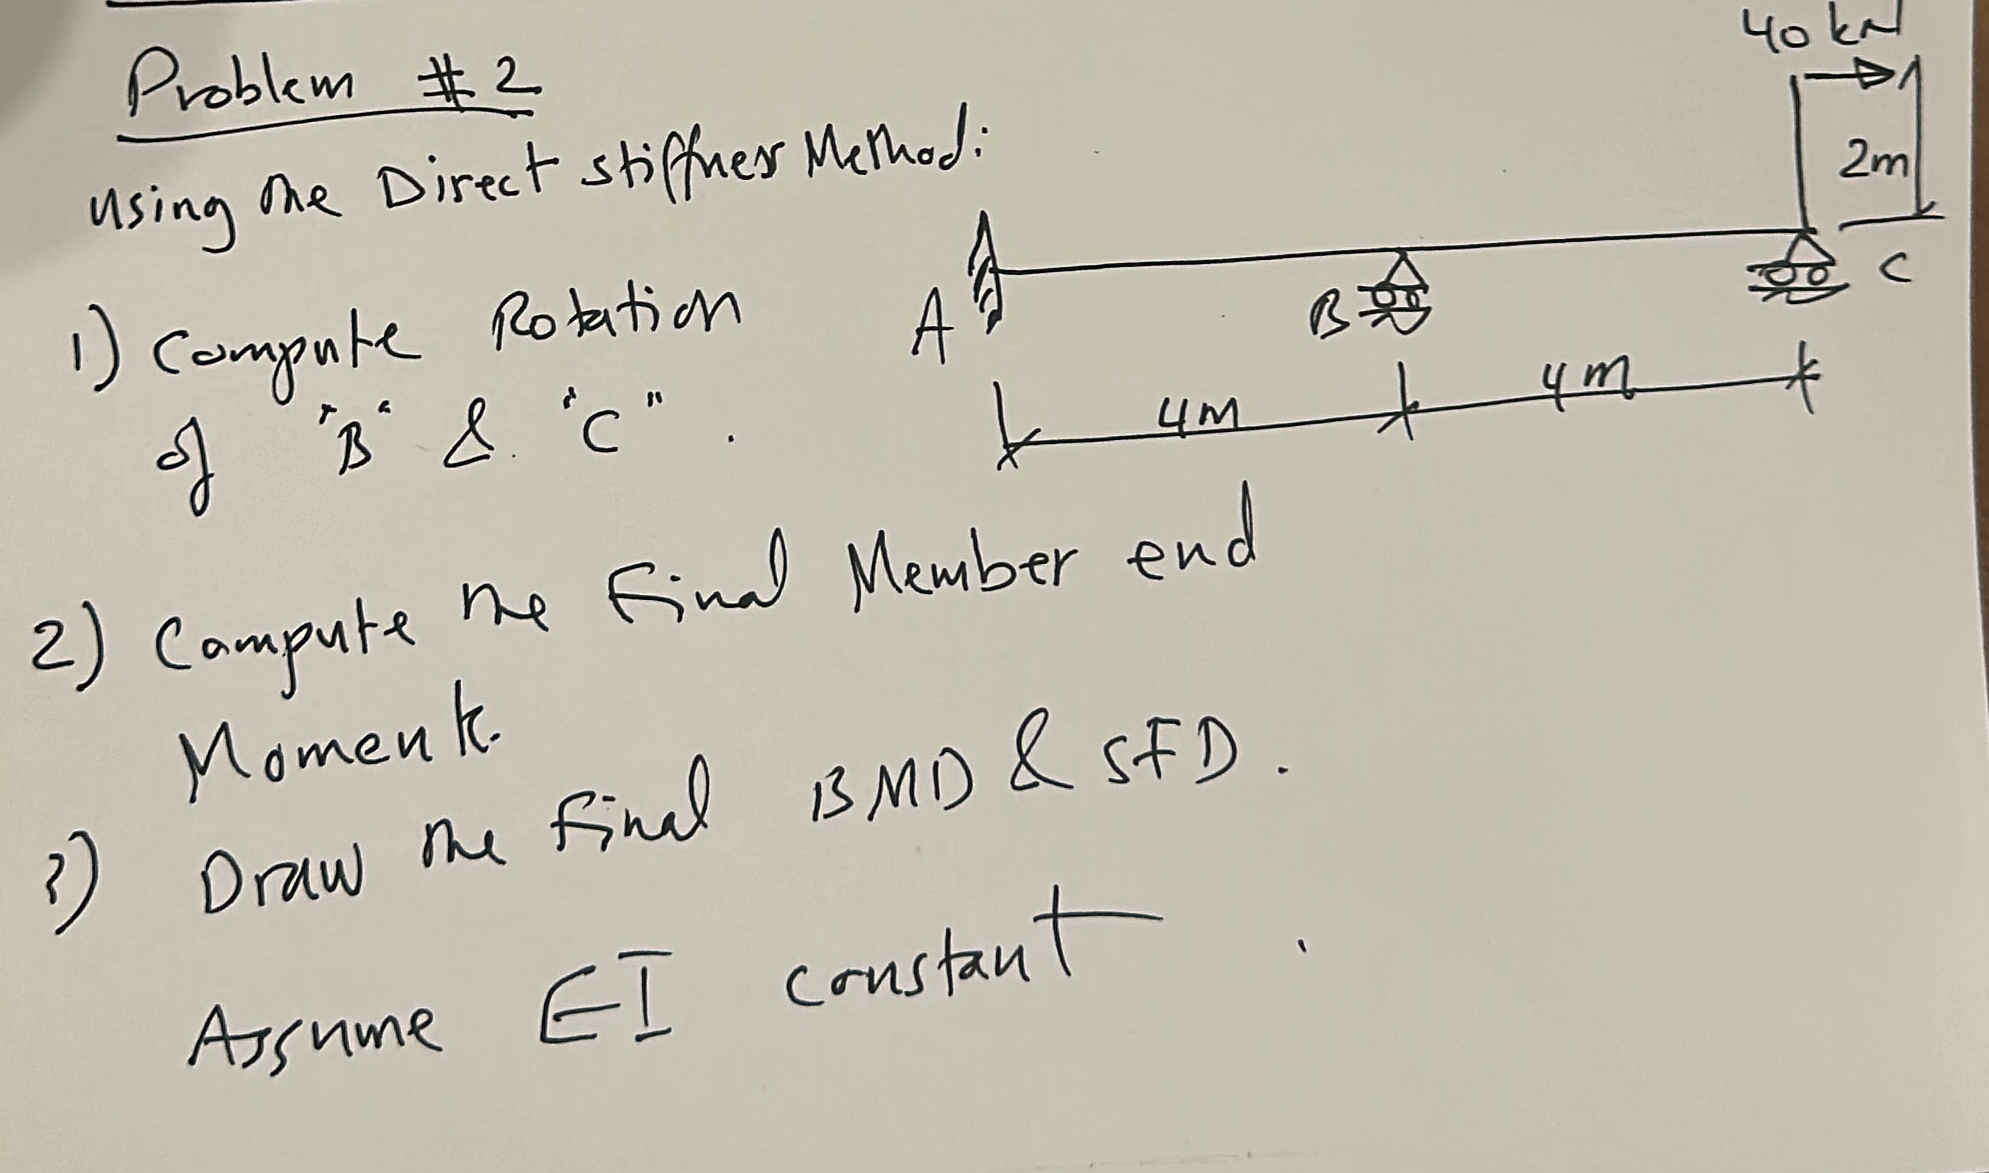 Problem #2
using the Direct stiffness Method:
1) Compute Rotation
of "B" & "C".
2) Compute the Final Member end
Moment.
3) Draw the final BMD & SFD.
Assume EI constant.
40 kN
2m
A
B
C
4m
4m